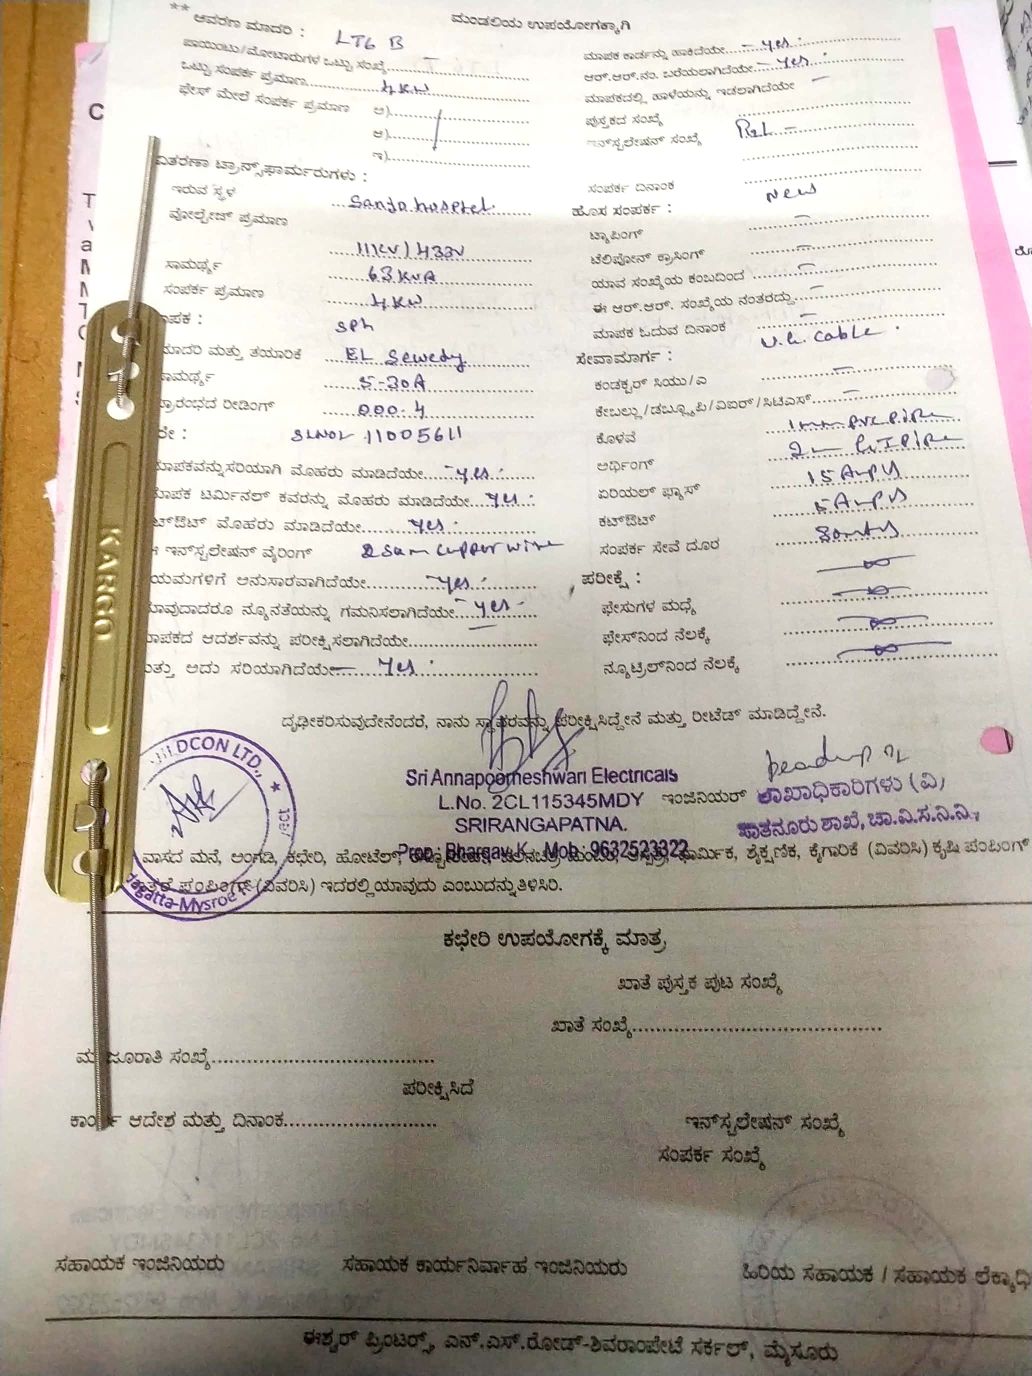 ಮಂಡಲಿಯ ಉಪಯೋಗಕ್ಕಾಗಿ
** ಆವರಣ ಮಾದರಿ : LT6 B
ಪಾಯಿಂಟು/ಮೋಟಾರುಗಳ ಒಟ್ಟು ಸಂಖ್ಯೆ
ಒಟ್ಟು ಸಂಪರ್ಕ ಪ್ರಮಾಣ 4KW
ಫೇಸ್ ಮೇಲೆ ಸಂಪರ್ಕ ಪ್ರಮಾಣ ಅ)
ಆ)
ಇ)
ವಿತರಣಾ ಟ್ರಾನ್ಸ್‌ಫಾರ್ಮರುಗಳು :
ಇರುವ ಸ್ಥಳ
ವೋಲ್ಟೇಜ್ ಪ್ರಮಾಣ 11KV/433V
ಸಾಮರ್ಥ್ಯ 63KVA
ಸಂಪರ್ಕ ಪ್ರಮಾಣ 4KW
ಪಕ : Sph
ಮಾದರಿ ಮತ್ತು ತಯಾರಿಕೆ EL Sewedy
ಸಾಮರ್ಥ್ಯ 5-30A
ಪ್ರಾರಂಭದ ರೀಡಿಂಗ್ 000.4
11005611
ಮಾಪಕವನ್ನು ಸರಿಯಾಗಿ ಮೊಹರು ಮಾಡಿದೆಯೇ - yes.
ಮಾಪಕ ಟರ್ಮಿನಲ್ ಕವರನ್ನು ಮೊಹರು ಮಾಡಿದೆಯೇ yes.
ಕಟ್‌ಔಟ್ ಮೊಹರು ಮಾಡಿದೆಯೇ yes.
ಈ ಇನ್‌ಸ್ಟಲೇಷನ್ ವೈರಿಂಗ್ copper wire
ನಿಯಮಗಳಿಗೆ ಅನುಸಾರವಾಗಿದೆಯೇ - yes.
ಯಾವುದಾದರೂ ನ್ಯೂನತೆಯನ್ನು ಗಮನಿಸಲಾಗಿದೆಯೇ - yes -
ಮಾಪಕದ ಆದರ್ಶವನ್ನು ಪರೀಕ್ಷಿಸಲಾಗಿದೆಯೇ
ಮತ್ತು ಅದು ಸರಿಯಾಗಿದೆಯೇ - Yes.
ಮಾಪಕ ಕಾರ್ಡನ್ನು ಹಾಕಿದೆಯೇ - yes.
ಆರ್.ಆರ್.ನಂ. ಬರೆಯಲಾಗಿದೆಯೇ - yes.
ಮಾಪಕದಲ್ಲಿ ಹಾಳೆಯನ್ನು ಇಡಲಾಗಿದೆಯೇ -
ಪುಸ್ತಕದ ಸಂಖ್ಯೆ
ಇನ್‌ಸ್ಟಲೇಷನ್ ಸಂಖ್ಯೆ
ಸಂಪರ್ಕ ದಿನಾಂಕ
ಹೊಸ ಸಂಪರ್ಕ : New
ಟ್ಯಾಪಿಂಗ್ -
ಟೆಲಿಪೋನ್ ಕ್ರಾಸಿಂಗ್ -
ಯಾವ ಸಂಖ್ಯೆಯ ಕಂಬದಿಂದ -
ಈ ಆರ್.ಆರ್. ಸಂಖ್ಯೆಯ ನಂತರದ್ದು -
ಮಾಪಕ ಓದುವ ದಿನಾಂಕ -
ಸೇವಾಮಾರ್ಗ : U.G. Cable.
ಕಂಡಕ್ಟರ್ ಸಿಯು/ಎ -
ಕೇಬಲ್ಲು/ಡಬ್ಲ್ಯೂಪಿ/ಎಐಆರ್/ಸಿಟಿಎಸ್ -
ಕೊಳವೆ PVC Pipe
ಅರ್ಥಿಂಗ್ GI Pipe
ಏರಿಯಲ್ ಫ್ಯೂಸ್ 15 Amps
ಕಟ್‌ಔಟ್ 5 Amps
ಸಂಪರ್ಕ ಸೇವೆ ದೂರ
ಪರೀಕ್ಷೆ :
ಫೇಸುಗಳ ಮಧ್ಯೆ
ಫೇಸ್‌ನಿಂದ ನೆಲಕ್ಕೆ
ನ್ಯೂಟ್ರಲ್‌ನಿಂದ ನೆಲಕ್ಕೆ
ದೃಢೀಕರಿಸುವುದೇನೆಂದರೆ, ನಾನು ಸ್ಥಾವರವನ್ನು ಪರೀಕ್ಷಿಸಿದ್ದೇನೆ ಮತ್ತು ರೀಟೆಡ್ ಮಾಡಿದ್ದೇನೆ.
Sri Annapoorneshwari Electricals
L.No. 2CL115345MDY
SRIRANGAPATNA.
Prop : Bhargav K. Mob : 9632523322
ಇಂಜಿನಿಯರ್
ಶಾಖಾಧಿಕಾರಿಗಳು (ವಿ)
ಶಾಖೆ, ಚಾ.ವಿ.ಸ.ನಿ.ನಿ.,
BUILDCON LTD.,
Mysroe
ವಾಸದ ಮನೆ, ಅಂಗಡಿ, ಕಛೇರಿ, ಹೋಟೆಲ್, ಶೈಕ್ಷಣಿಕ, ಕೈಗಾರಿಕೆ (ವಿವರಿಸಿ) ಕೃಷಿ ಪಂಪಿಂಗ್
ಪಂಪಿಂಗ್ (ವಿವರಿಸಿ) ಇದರಲ್ಲಿ ಯಾವುದು ಎಂಬುದನ್ನು ತಿಳಿಸಿರಿ.
ಕಛೇರಿ ಉಪಯೋಗಕ್ಕೆ ಮಾತ್ರ
ಖಾತೆ ಪುಸ್ತಕ ಪುಟ ಸಂಖ್ಯೆ
ಖಾತೆ ಸಂಖ್ಯೆ
ಮಂಜೂರಾತಿ ಸಂಖ್ಯೆ
ಪರೀಕ್ಷಿಸಿದೆ
ಕಾರ್ಯ ಆದೇಶ ಮತ್ತು ದಿನಾಂಕ
ಇನ್‌ಸ್ಟಲೇಷನ್ ಸಂಖ್ಯೆ
ಸಂಪರ್ಕ ಸಂಖ್ಯೆ
ಸಹಾಯಕ ಇಂಜಿನಿಯರು ಸಹಾಯಕ ಕಾರ್ಯನಿರ್ವಾಹ ಇಂಜಿನಿಯರು ಹಿರಿಯ ಸಹಾಯಕ / ಸಹಾಯಕ ಲೆಕ್ಕಾಧಿ
ಈಶ್ವರ್ ಪ್ರಿಂಟರ್ಸ್, ಎನ್.ಎಸ್.ರೋಡ್-ಶಿವರಾಂಪೇಟೆ ಸರ್ಕಲ್, ಮೈಸೂರು
KARGO